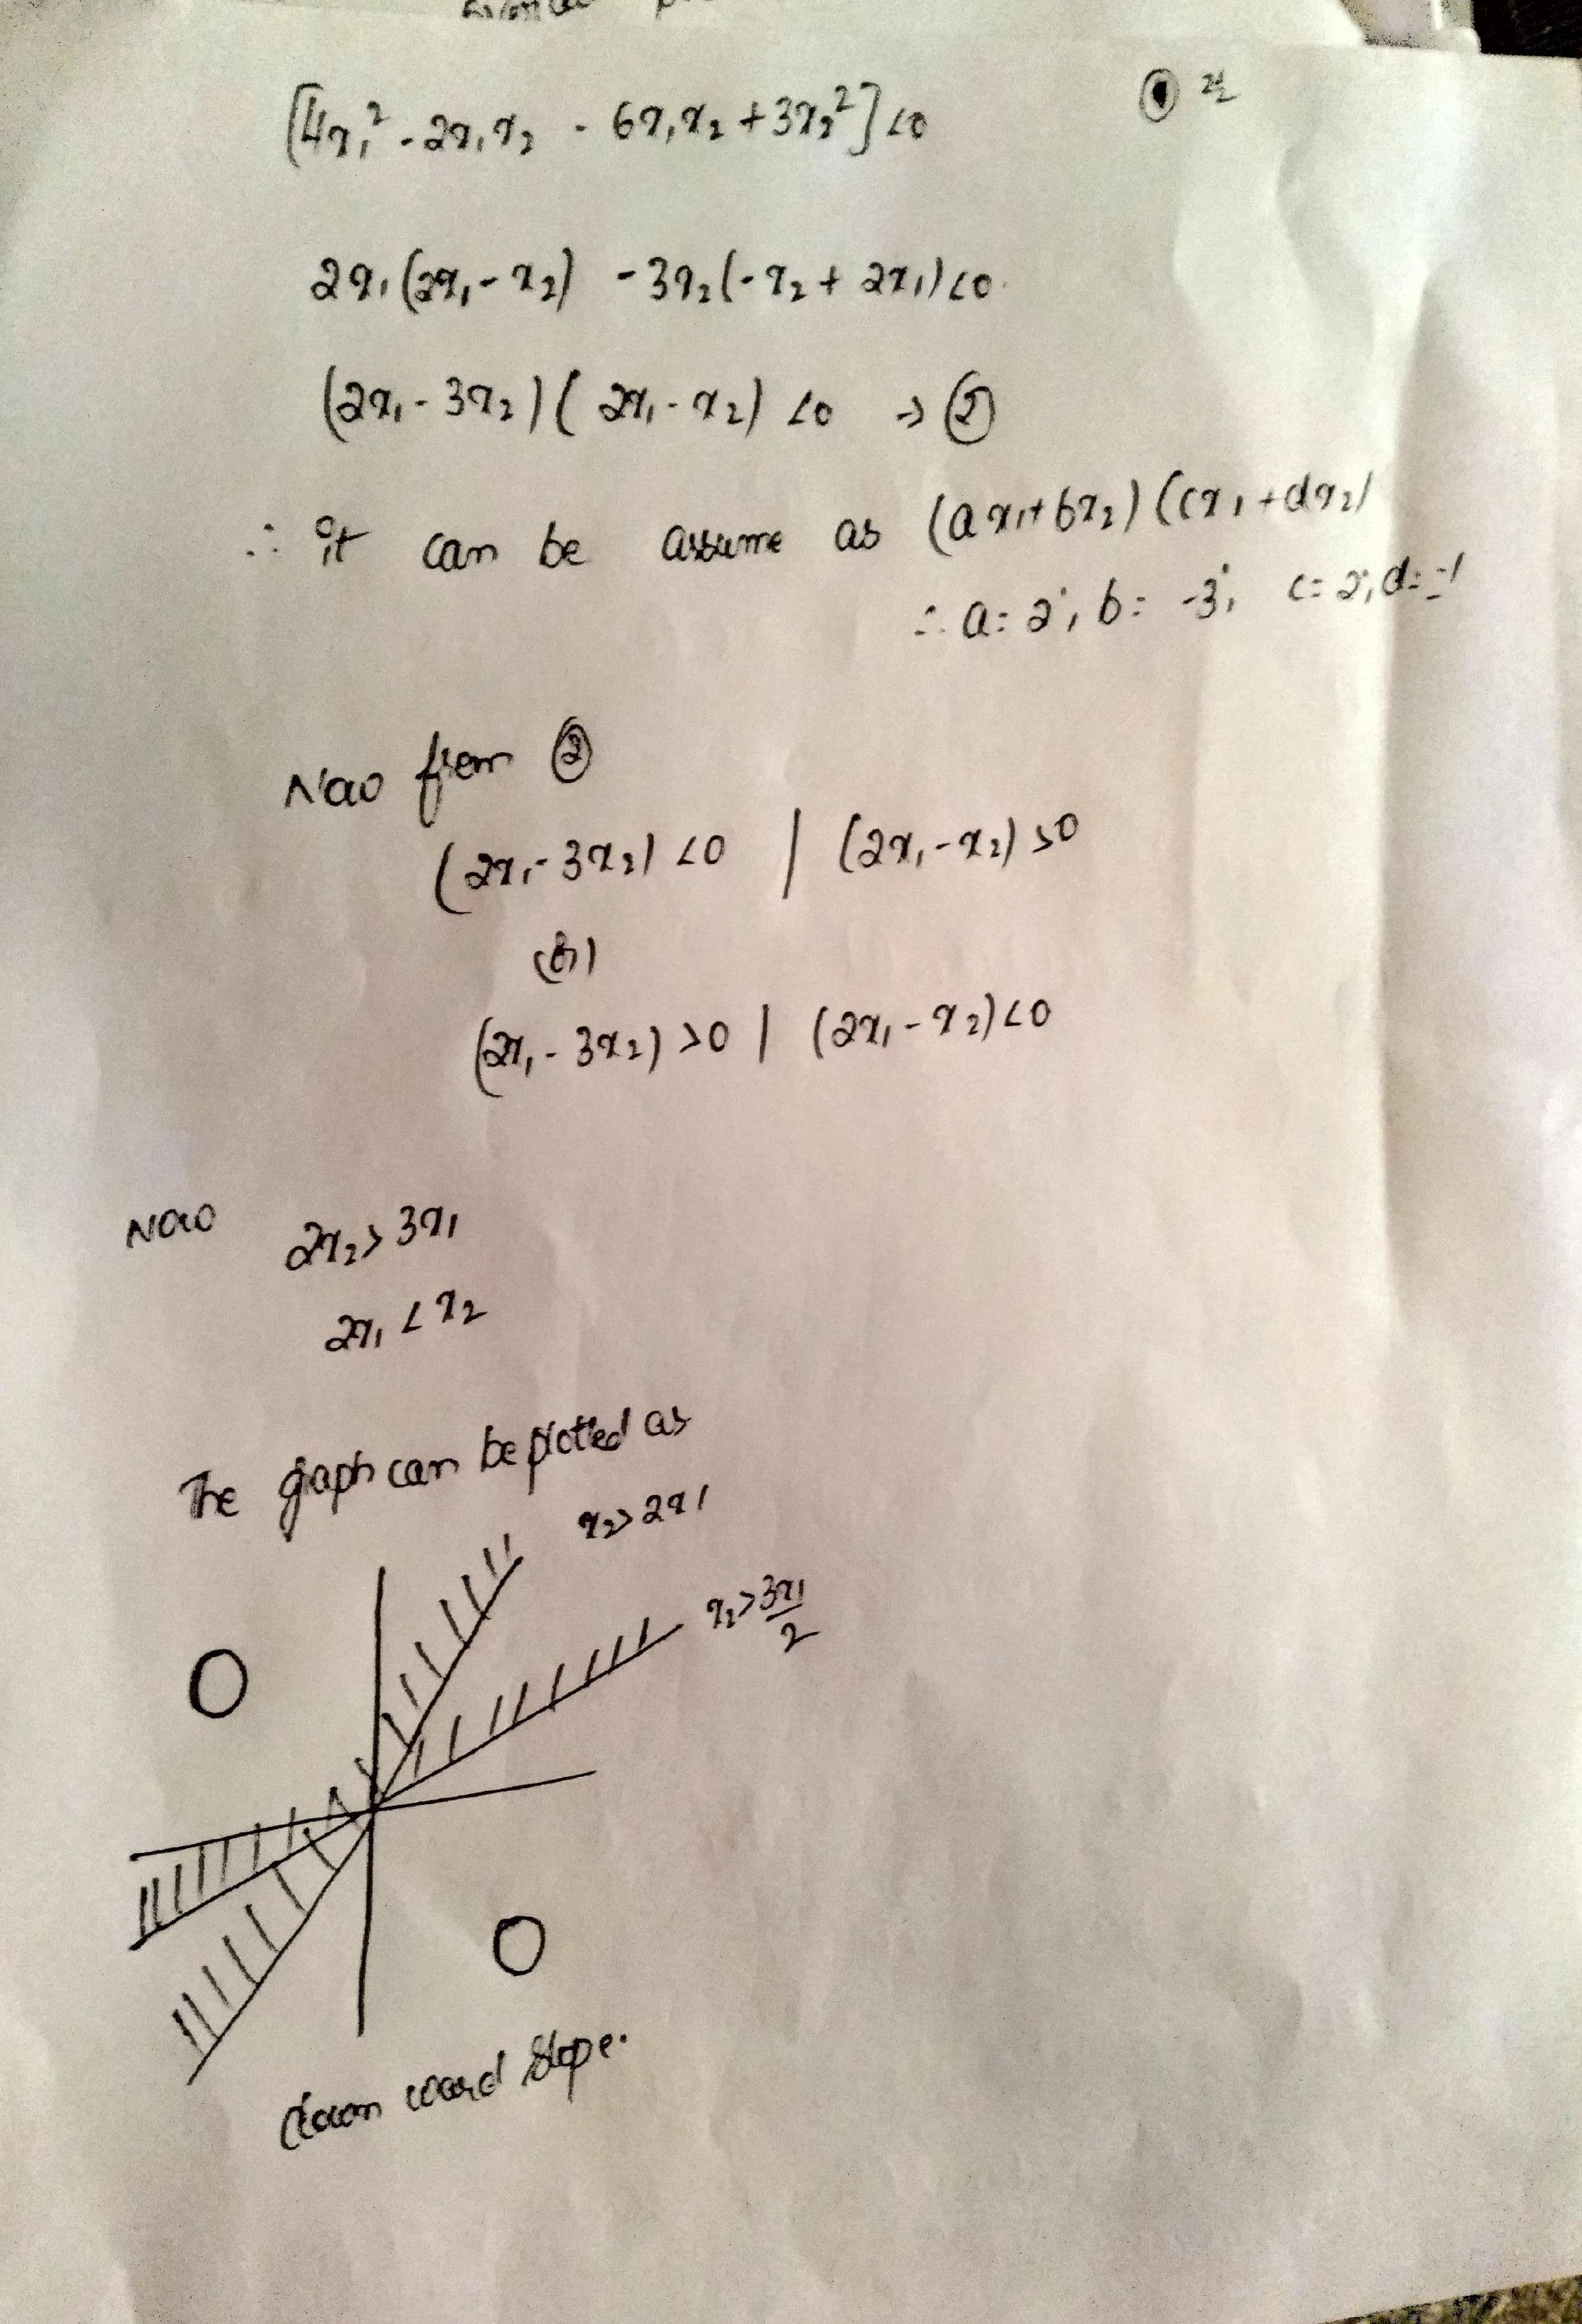 [4x₁² - 2x₁x₂ - 6x₁x₂ + 3x₂²] < 0
2x₁(2x₁ - x₂) - 3x₂(-x₂ + 2x₁) < 0
(2x₁ - 3x₂)(2x₁ - x₂) < 0 → ②
∴ it can be assume as (ax₁ + bx₂)(cx₁ + dx₂)
∴ a = 2, b = -3, c = 2, d = -1
Now from ②
(2x₁ - 3x₂) < 0 | (2x₁ - x₂) > 0
(or)
(2x₁ - 3x₂) > 0 | (2x₁ - x₂) < 0
Now 2x₂ > 3x₁
2x₁ < x₂
The graph can be plotted as
x₂ > 2x₁
x₂ > 3x₁/2
O
O
down ward slope.